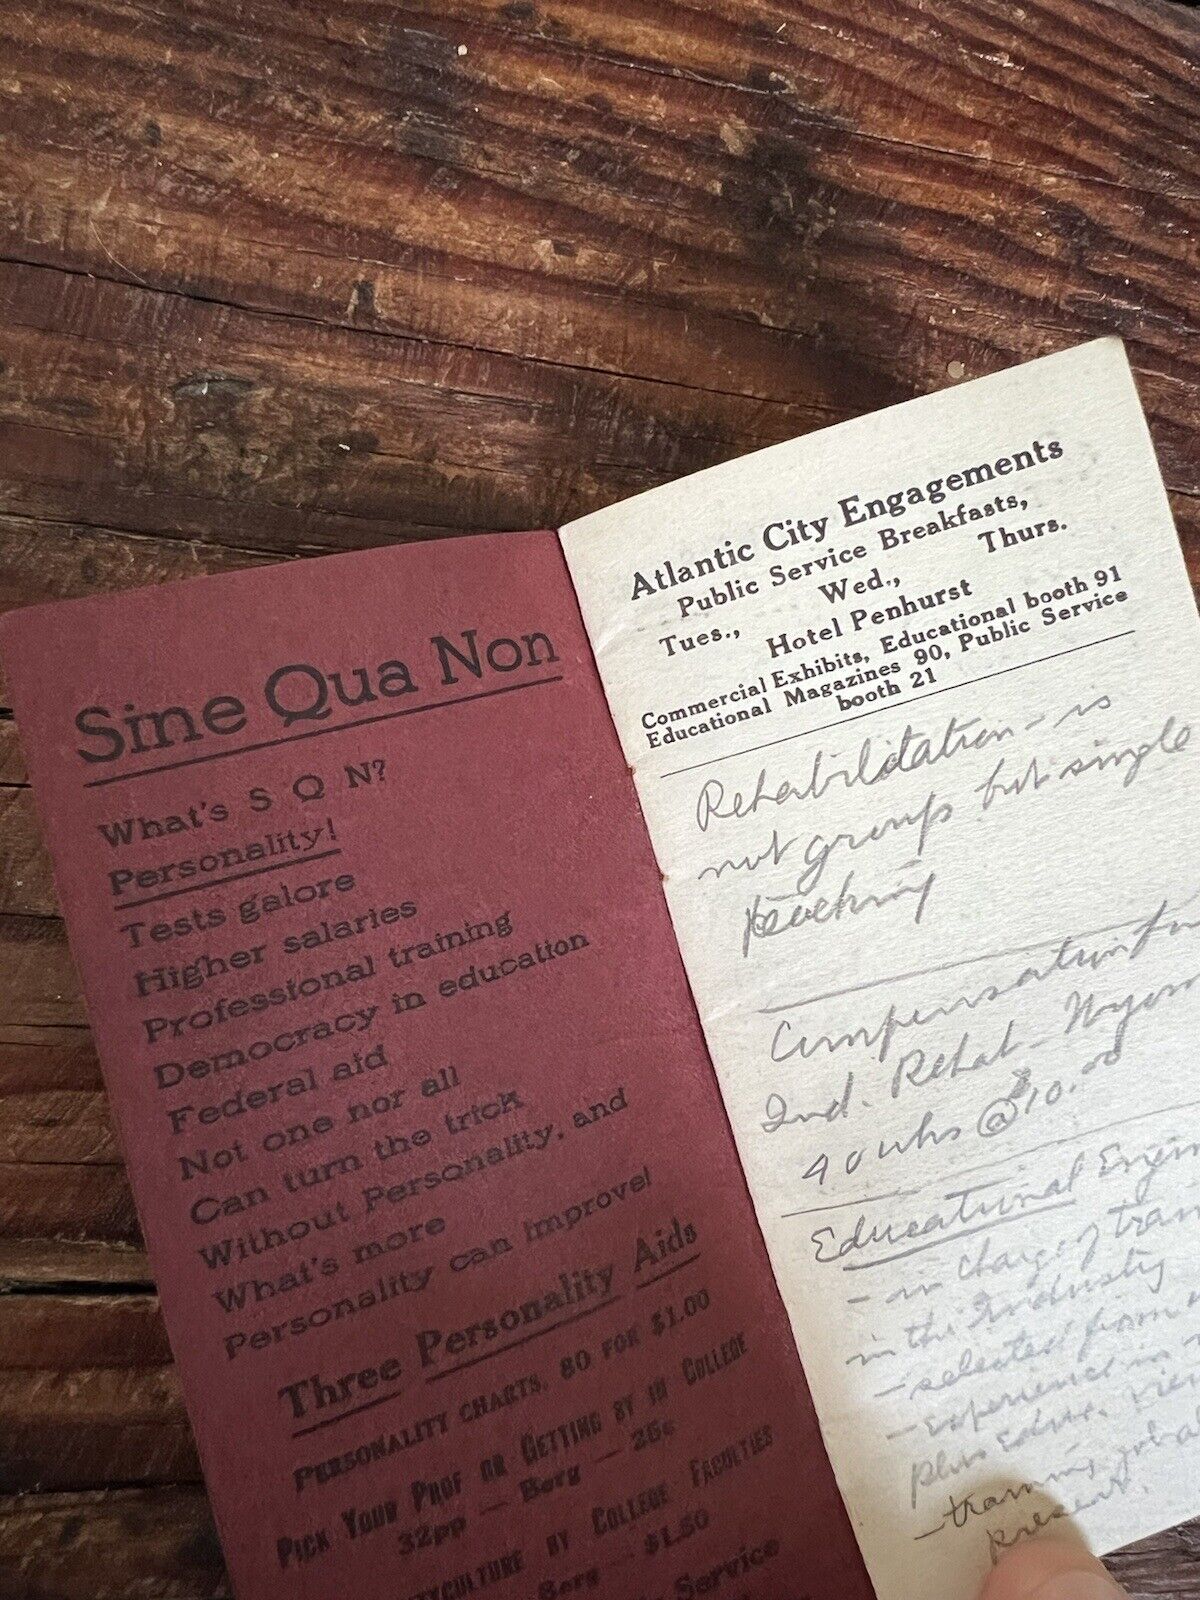 Sine Qua Non
What's S Q N?
Personality!
Tests galore
Higher salaries
Professional training
Democracy in education
Federal aid
Not one nor all
Can turn the trick
Without Personality, and
What's more
Personality can improve!
Three Personality Aids
PERSONALITY CHARTS, 80 FOR $1.00
PICK YOUR PROF OR GETTING BY IN COLLEGE
32pp — Berg — 25c
BY COLLEGE FACULTIES
Berg — $1.50
Service
Atlantic City Engagements
Public Service Breakfasts,
Tues., Wed., Thurs.
Hotel Penhurst
Commercial Exhibits, Educational booth 91
Educational Magazines 90, Public Service
booth 21
Rehabilitation - is
not groups but single
teaching
Compensation
Ind. Rehab -
40 whs @ $10.00
Educational
- in charge of
in the Industry
- selected from
- experience in
plus educ.
- training
present.